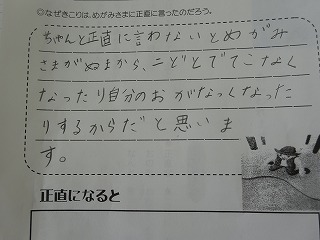 ◎なぜきこりは、めがみさまに正直に言ったのだろう。
ちゃんと正直に言わないとめがみ
さまがぬまから、二どとでてこなく
なったり自分のおがなっくなった
りするからだと思いま
す。
正直になると